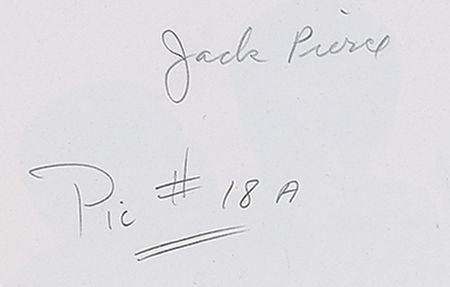 Jack Pierce
Pic # 18 A